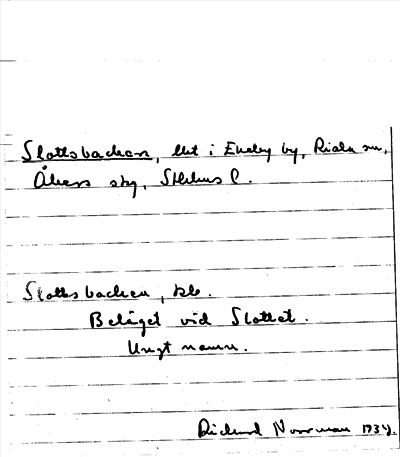 Slottsbacken, lht i Ekeby by, Riala sn,
Åkers skg, Sthlms l.
Slottsbacken, bke.
Beläget vid Slottet.
Ungt namn.
Rickard Norrman 1934.